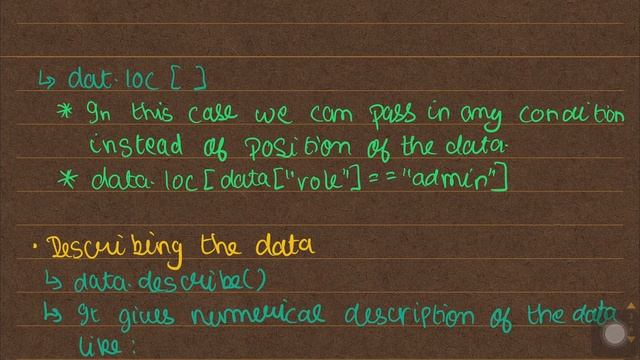 ↳ dat.loc [ ]
* In this case we can pass in any condition
instead of position of the data.
* data.loc[data["role"]=="admin"]
• Describing the data
↳ data.describe()
↳ It gives numerical description of the data
like: